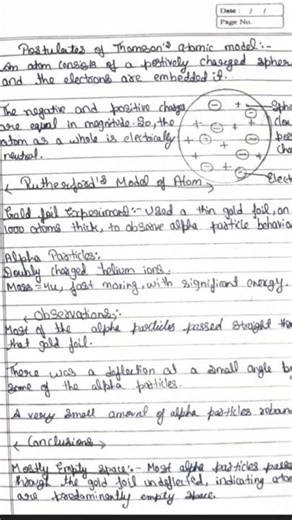 Date : / /
Page No.
Postulates of Thomson's atomic model:-
An atom consists of a positively charged spher
and the electrons are embedded it.
The negative and positive charges
are equal in magnitude. So, the
atom as a whole is electrically
neutral.
Sphe
clou
pos
cha
Elect
Rutherford's Model of Atom
Gold foil Experiment:- Used a thin gold foil, an
1000 atoms thick, to observe alpha particle behavio
Alpha Particles:
Doubly charged helium ions.
Mass = 4u, fast moving, with significant energy.
Observations:-
Most of the alpha particles passed straight th
that gold foil.
There was a deflection at a small angle by
some of the alpha particles.
A very small amount of alpha particles reboun
Conclusions
Mostly Empty space:- Most alpha particles passe
through the gold foil undeflected, indicating atom
are predominently empty space.